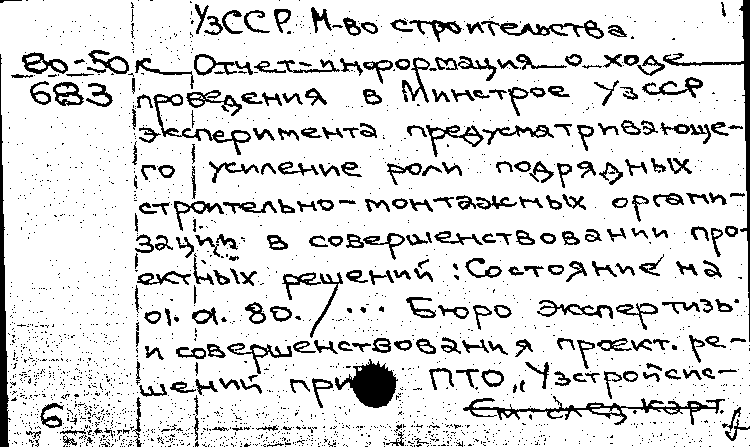 УзССР. М-во строительства.
80-50к Отчет-информация о ходе
683 проведения в Минстрое УзССР
эксперимента предусматривающе-
го усиление роли подрядных
строительно-монтажных органи-
заций в совершенствовании про-
ектных решений: Состояние на
01.01.80. / ... Бюро экспертизы
и совершенствования проект. ре-
шений при ПТО „Узстройспс-
6 См. след. карт.